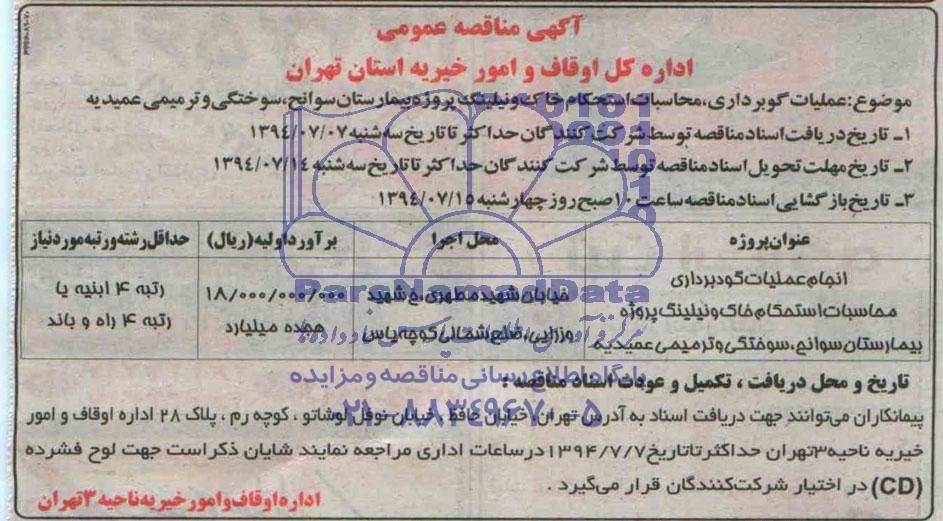 آگهی مناقصه عمومی
اداره کل اوقاف و امور خیریه استان تهران
موضوع: عملیات گوبرداری، محاسبات استحکام خاک و نیلینگ پروژه بیمارستان سوانح، سوختگی و ترمیمی عمیدیه
۱ـ تاریخ دریافت اسناد مناقصه توسط شرکت کنندگان حداکثر تا تاریخ سه شنبه ۱۳۹٤/۰۷/۰۷
۲ـ تاریخ مهلت تحویل اسناد مناقصه توسط شرکت کنندگان حداکثر تا تاریخ سه شنبه ۱۳۹٤/۰۷/۱٤
۳ـ تاریخ بازگشایی اسناد مناقصه ساعت ۱۰ صبح روز چهارشنبه ۱۳۹٤/۰۷/۱۵
عنوان پروژه محل اجرا برآورد اولیه (ریال) حداقل رشته ورتبه مورد نیاز
انجام عملیات گودبرداری
محاسبات استحکام خاک و نیلینگ پروژه
بیمارستان سوانح، سوختگی و ترمیمی عمیدیه
خیابان شهید مطهری، خ شهید
وزرایی، ضلع شمالی کوچه یاس
۱۸/۰۰۰/۰۰۰/۰۰۰
هجده میلیارد
رتبه ۴ ابنیه یا
رتبه ۴ راه و باند
ParsNamadData
پایگاه اطلاع رسانی مناقصه و مزایده
۰۲۱-۸۸۳۴۹۶۷۰-۵
تاریخ و محل دریافت، تکمیل و عودت اسناد مناقصه:
پیمانکاران می‌توانند جهت دریافت اسناد به آدرس تهران، خیابان حافظ، خیابان نوفل لوشاتو، کوچه رم، پلاک ۲۸ اداره اوقاف و امور
خیریه ناحیه ۳ تهران حداکثر تا تاریخ ۱۳۹۴/۷/۷ در ساعات اداری مراجعه نمایند شایان ذکر است جهت لوح فشرده
(CD) در اختیار شرکت‌کنندگان قرار می‌گیرد.
اداره اوقاف و امور خیریه ناحیه ۳ تهران